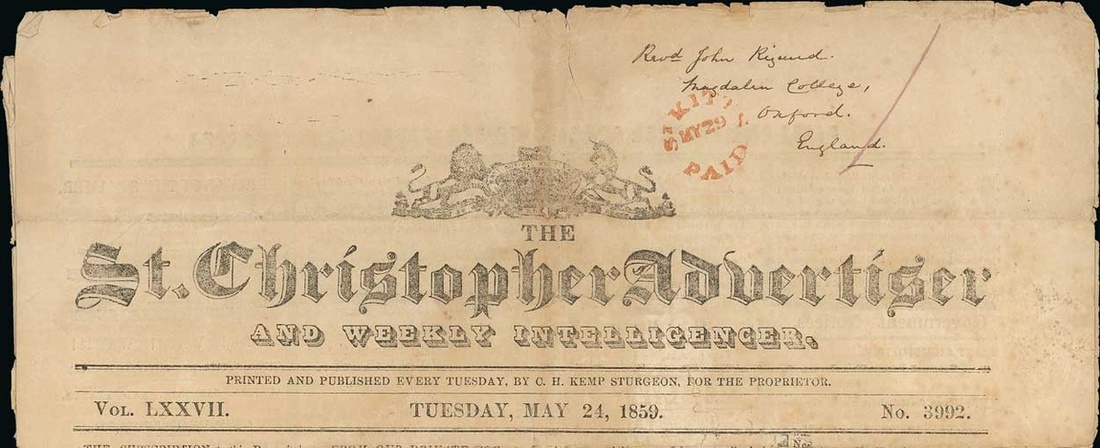 Revd John Rigaud.
Magdalen College,
Oxford.
England.
St KITTS
MY 29
PAID
THE
St. Christopher Advertiser
AND WEEKLY INTELLIGENCER.
PRINTED AND PUBLISHED EVERY TUESDAY, BY C. H. KEMP STURGEON, FOR THE PROPRIETOR.
VOL. LXXVII.
TUESDAY, MAY 24, 1859.
No. 3992.